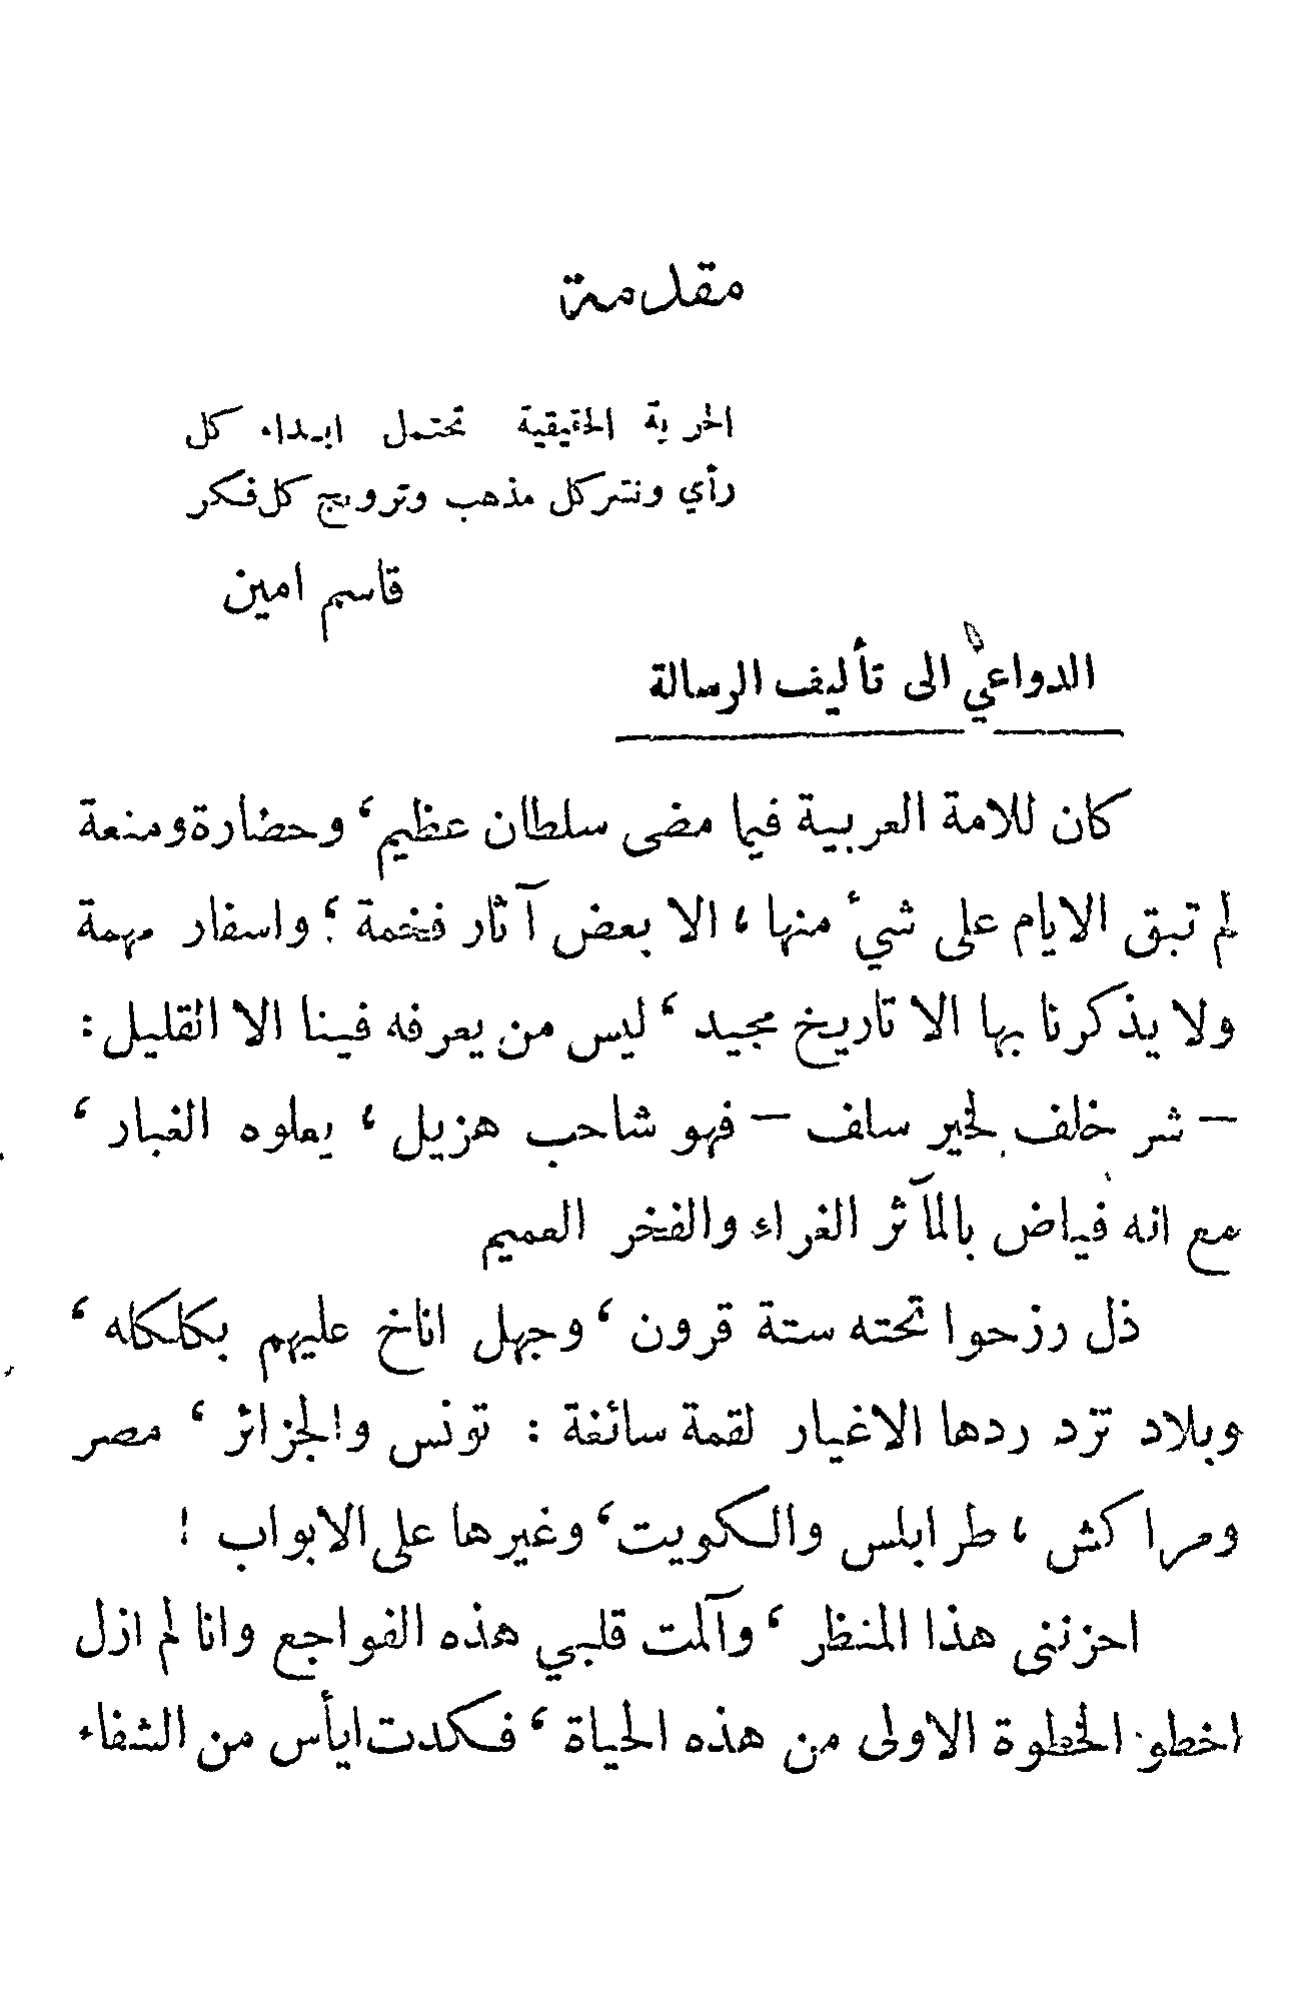 مقدمة
الحرية الحقيقية تحتمل ابداء كل
رأي ونشر كل مذهب وترويج كل فكر
قاسم امين
الدواعي الى تأليف الرسالة
كان للامة العربية فيما مضى سلطان عظيم، وحضارة ومنعة
لم تبق الايام على شيء منها، الا بعض آثار فخمة؛ واسفار مهمة
ولا يذكرنا بها الا تاريخ مجيد، ليس من يعرفه فينا الا القليل:
— شر خلف لخير سلف — فهو شاحب هزيل، يعلوه الغبار،
مع انه فياض بالمآثر الغراء والفخر العميم
ذل رزحوا تحته ستة قرون، وجهل اناخ عليهم بكلكله،
وبلاد تزدردها الاغيار لقمة سائغة: تونس والجزائر، مصر
ومراكش، طرابلس والكويت، وغيرها على الابواب!
احزنني هذا المنظر، وآلمت قلبي هذه الفواجع وانا لم ازل
اخطو الخطوة الاولى من هذه الحياة، فكدت ايأس من الشفاء